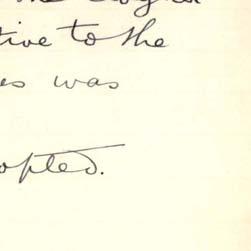 the
tive to the
es was
opted.